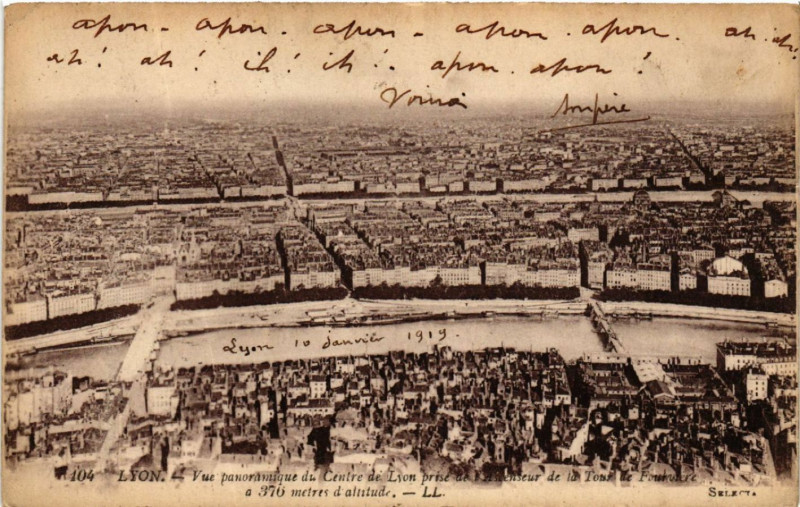 apon - apon. apon - apon. apon. ah. ah!
ah! ah! ih! ih! apon. apon!
Ampère
Lyon 10 Janvier 1919.
104 LYON. — Vue panoramique du Centre de Lyon prise de l'Ascenseur de la Tour de Fourvière
a 376 metres d'altitude. — LL. SELECTA